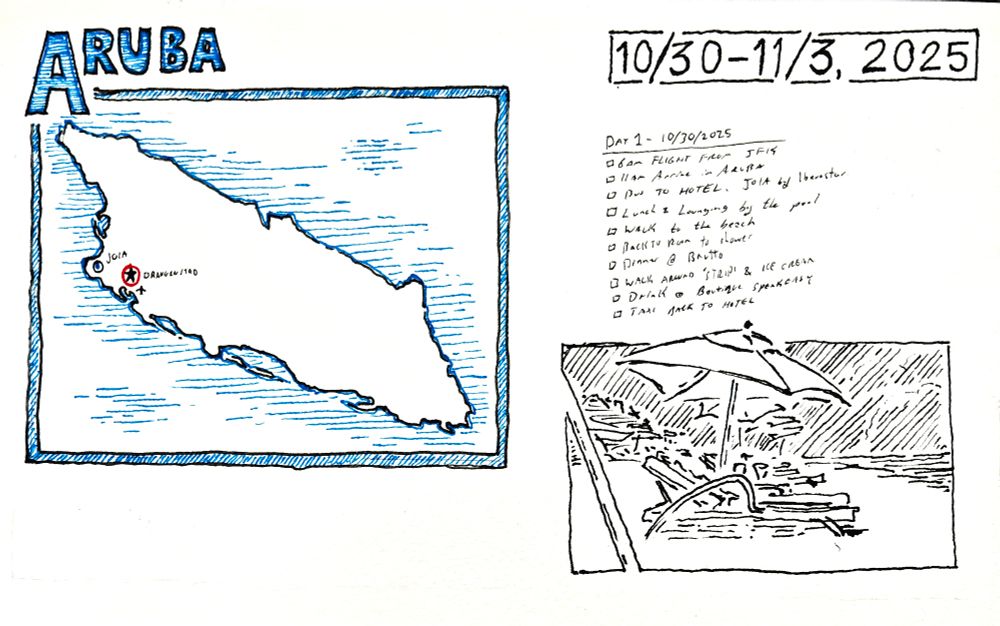 ARUBA
JOIA
ORANGESTAD
10/30-11/3, 2025
DAY 1 - 10/30/2025
6am FLIGHT FROM JFK
11am Arrive in ARUBA
BUS TO HOTEL. JOIA by Iberostar
Lunch & Lounging by the pool
WALK to the beach
BACK TO ROOM to shower
Dinner @
WALK AROUND 'STRIP' & ICE CREAM
Drink @ Boutique Speakeasy
TAXI BACK TO HOTEL